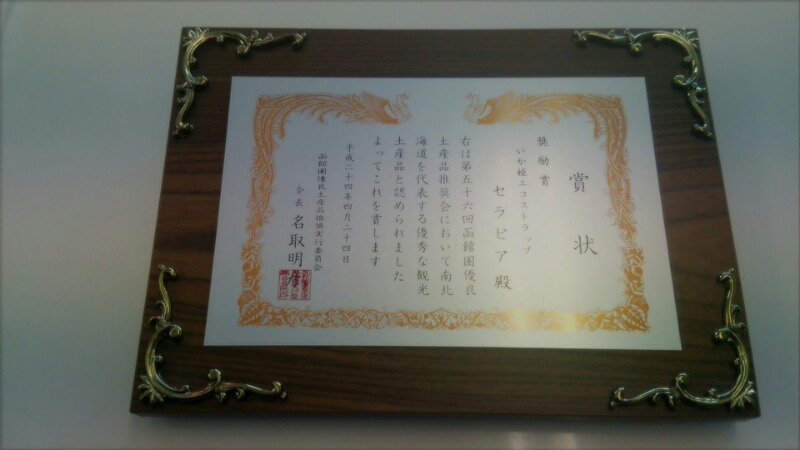 賞状
奨励賞
いか様エコストラップ
セラピア殿
右は第五十六回函館圏優良
土産品推奨会において南北
海道を代表する優秀な観光
土産品と認められました
よってこれを賞します
平成二十四年四月二十四日
函館圏優良土産品推奨実行委員会
会長 名取明